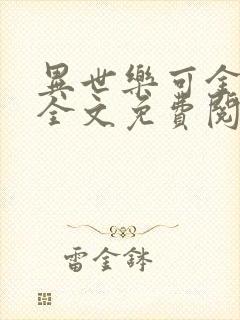 異世樂可全
全文免費閱
雷金鉢